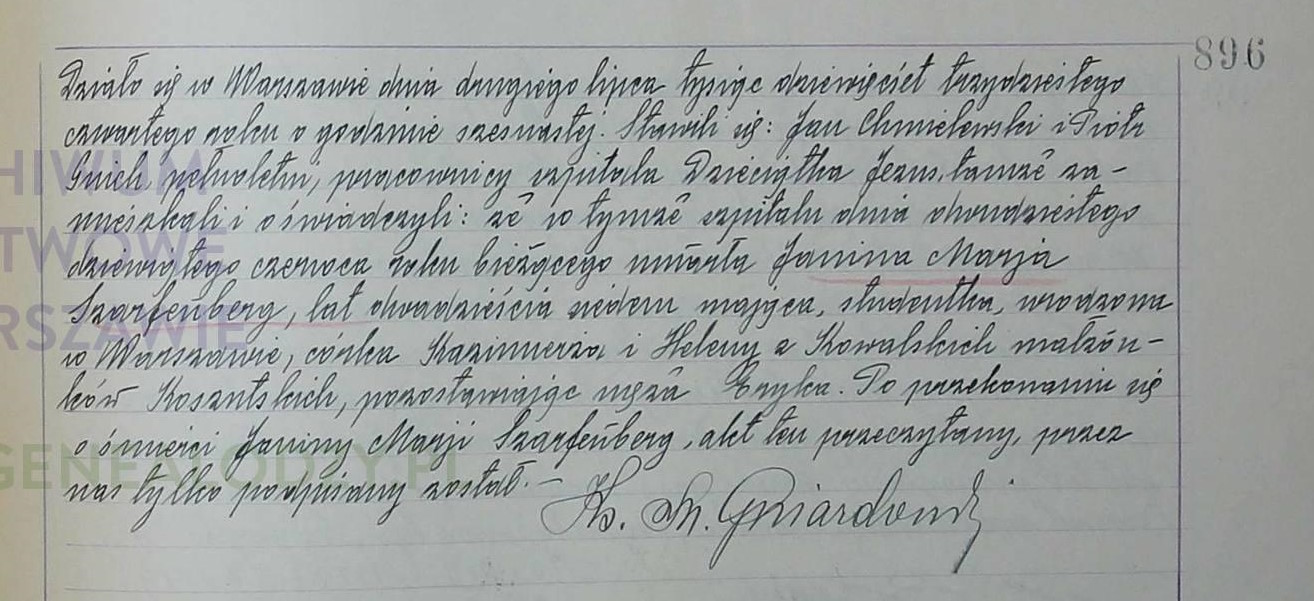 896
Działo się w Warszawie dnia drugiego lipca tysiąc dziewięćset trzydziestego
czwartego roku o godzinie szesnastej. Stawili się: Jan Chmielewski i Piotr
pełnoletni, pracownicy szpitala Dzieciątka Jezus, tamże za-
mieszkali i oświadczyli: że w tymże szpitalu dnia dwudziestego
dziewiątego czerwca roku bieżącego umarła Janina Marja
Szarfenberg, lat dwadzieścia siedem mająca, studentka, urodzona
w Warszawie, córka Kazimierza i Heleny z Kowalskich małżon-
ków Koszutskich, pozostawiając męża Eryka. Po przekonaniu się
o śmierci Janiny Marji Szarfenberg, akt ten przeczytany, przez
nas tylko podpisany został. —
Ks. M.
HIWUM
TWOWE
RSZAWIE
GENEALODZY.PL